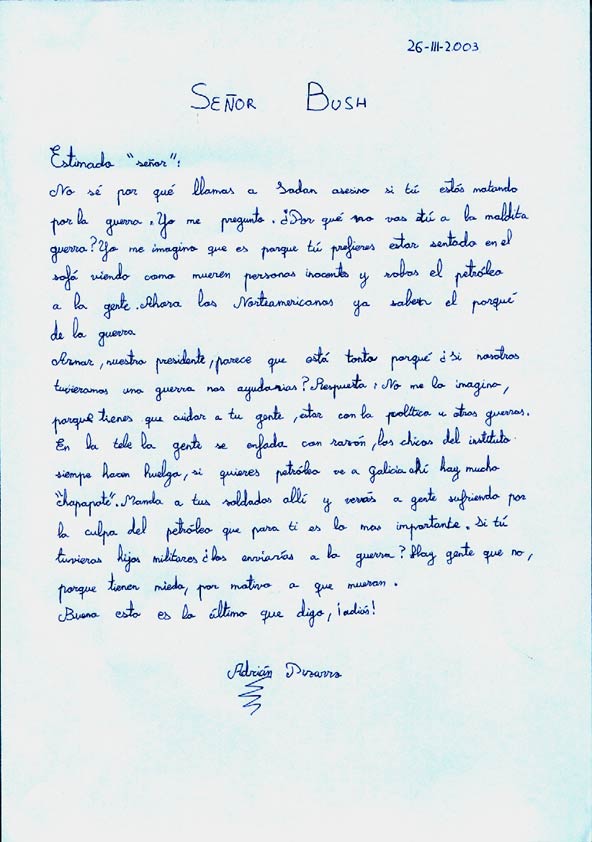 26-III-2003
SEÑOR BUSH
Estimado "señor":
No sé por qué llamas a Sadan asesino si tú estás matando
por la guerra. Yo me pregunto. ¿Por qué no vas tú a la maldita
guerra? Yo me imagino que es porque tú prefieres estar sentado en el
sofá viendo como mueren personas inocentes y robas el petróleo
a la gente. Ahora los Norteamericanos ya saben el porqué
de la guerra
Aznar, nuestro presidente, parece que está tonto porqué ¿Si nosotros
tuvieramos una guerra nos ayudarias? Respuesta: No me lo imagino,
porque tienes que cuidar a tu gente, estar con la política u otras guerras.
En la tele la gente se enfada con razón, los chicos del instituto
siempre hacen huelga, si quieres petróleo ve a Galicia ahí hay mucho
"chapapote". Manda a tus soldados allí y verás a gente sufriendo por
la culpa del petróleo que para ti es lo mas importante. Si tú
tuvieras hijos militares ¿los enviarías a la guerra? Hay gente que no,
porque tienen miedo, por motivo a que mueran.
Bueno esto es lo último que digo, ¡adiós!
Adrián Pizarro